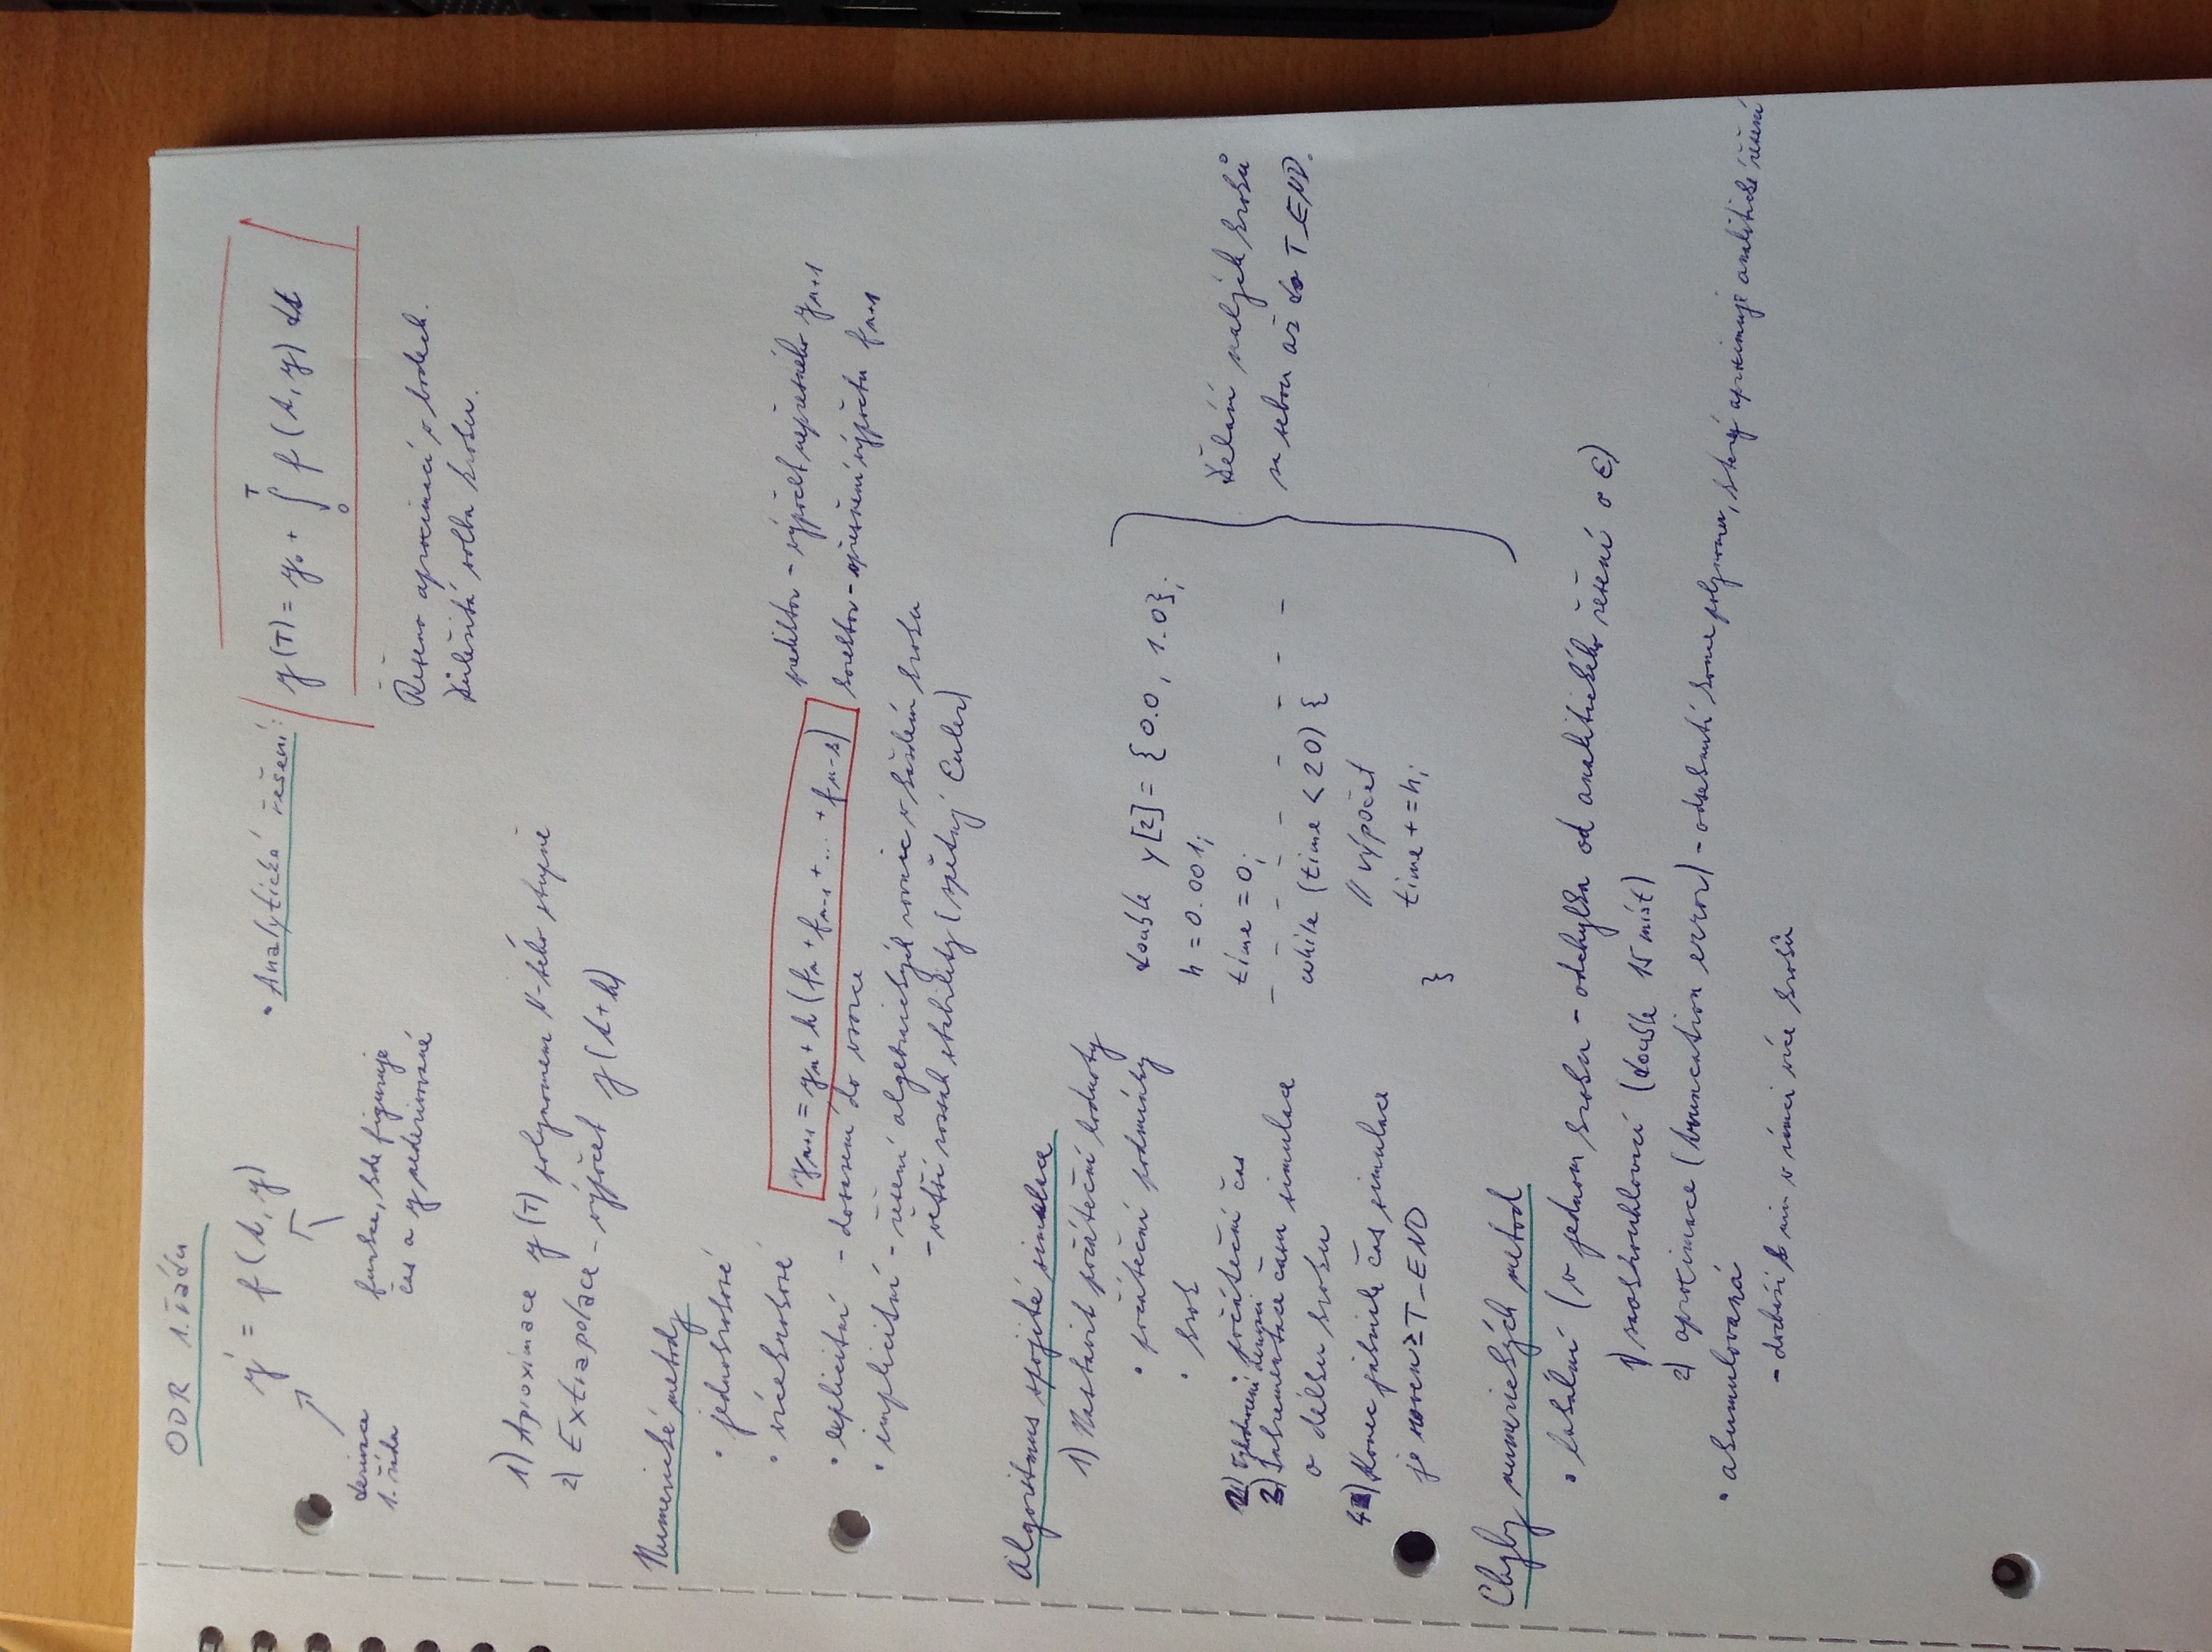 ODR 1. řádu
y' = f(t, y)
derivace
1. řádu
funkce, kde figuruje
čas a y nederivované
• Analytické řešení:
y(T) = y₀ + ∫₀ᵀ f(t, y) dt
Řešeno aproximací v bodech.
Důležitá volba kroku.
1) Aproximace y(T) polynomem N-tého stupně
2) Extrapolace – výpočet y(t+h)
Numerické metody
• jednokrokové
• vícekrokové
yₙ₊₁ = yₙ + h (fₙ + fₙ₋₁ + ... + fₙ₋ₖ)
prediktor – výpočet nepřesného yₙ₊₁
korektor – zpřesnění výpočtu fₙ₊₁
• explicitní – dosazení do vzorce
• implicitní – řešení algebraických rovnic v každém kroku
– větší rozsah stability (zpětný Euler)
Algoritmus spojité simulace
1) Nastavit počáteční hodnoty
• počáteční podmínky
• krok
• počáteční čas
2) Vyhodnocení derivací
3) Inkrementace času simulace
o délku kroku
4) Konec jakmile čas simulace
je roven ≥ T_END
double y[2] = {0.0, 1.0};
h = 0.001;
time = 0;
while (time < 20) {
// výpočet
time += h;
}
Dělání malých kroků
za sebou až do T_END.
Chyby numerických metod
• lokální (v jednom kroku – odchylka od analitického řešení o ε)
1) zaokrouhlovací (double 15 míst)
2) aproximace (truncation error) – odseknutí konce polynomu, který aproximuje analitické řešení
• akumulovaná
– dochází k ním v rámci více kroků